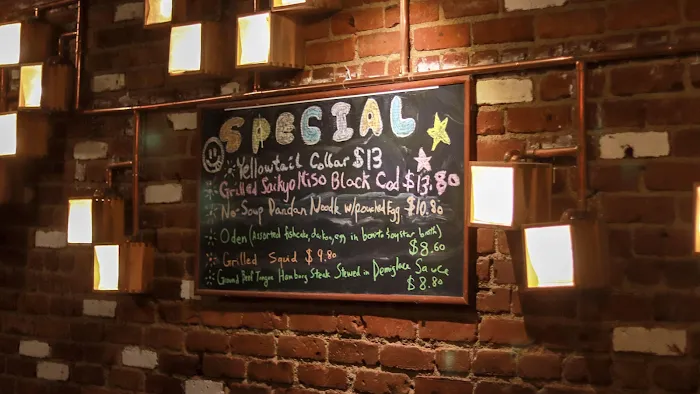 SPECIAL
Yellowtail Collar $13
Grilled Saikyo Miso Black Cod $13.80
No-Soup Dandan Noodle w/poached Egg $10.80
Oden (Assorted fishcake, daikon, egg in bonito & soy star broth)
$8.60
Grilled Squid $9.80
Ground Beef Tongue Hamburg Steak Stewed in Demiglace Sauce
$8.80